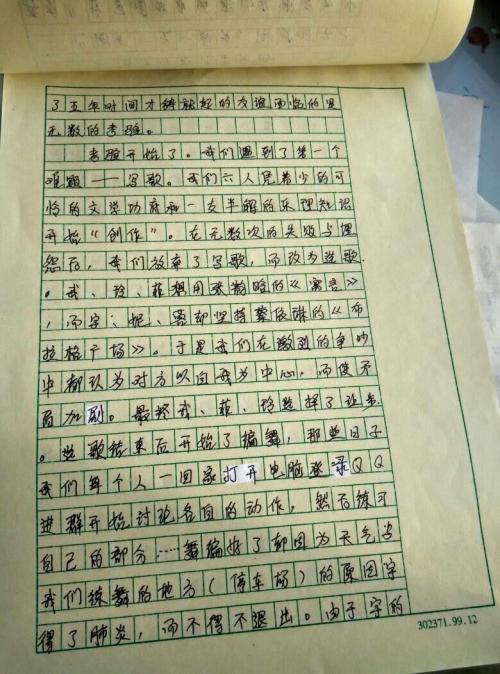 了五年时间才铸就起的友谊面临的是
无数的考验。
考验开始了。我们遇到了第一个
难题——写歌。我们六人凭着少的可
怜的文学功底和一支半解的乐理知识
开始“创作”。在无数次的失败与埋
怨后，我们放弃了写歌，而改为选歌
。我、玲、菲想用张韶涵的《寓言》
，而字、妮、蓉却坚持蔡依琳的《布
拉格广场》。于是我们在激烈的争吵
中都认为对方以自我为中心，而使矛
盾加剧。最终我、菲、玲选择了让步
。选歌结束后开始了编舞，那些日子
我们每个人一回家打开电脑登录QQ
进群开始讨论各自的动作，然后练习
自己的部分……舞编好了却因为天气与
我们练舞的地方（停车场）的原因字
得了肺炎，而不得不退出。由于字的
302371.99.12